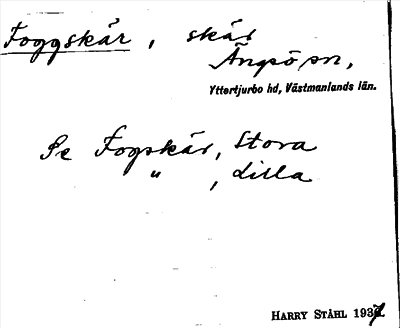 Foggskär, skär
Ängsö sn,
Yttertjurbo hd, Västmanlands län.
Se Fogskär, Stora
" , Lilla
HARRY STÅHL 1937.